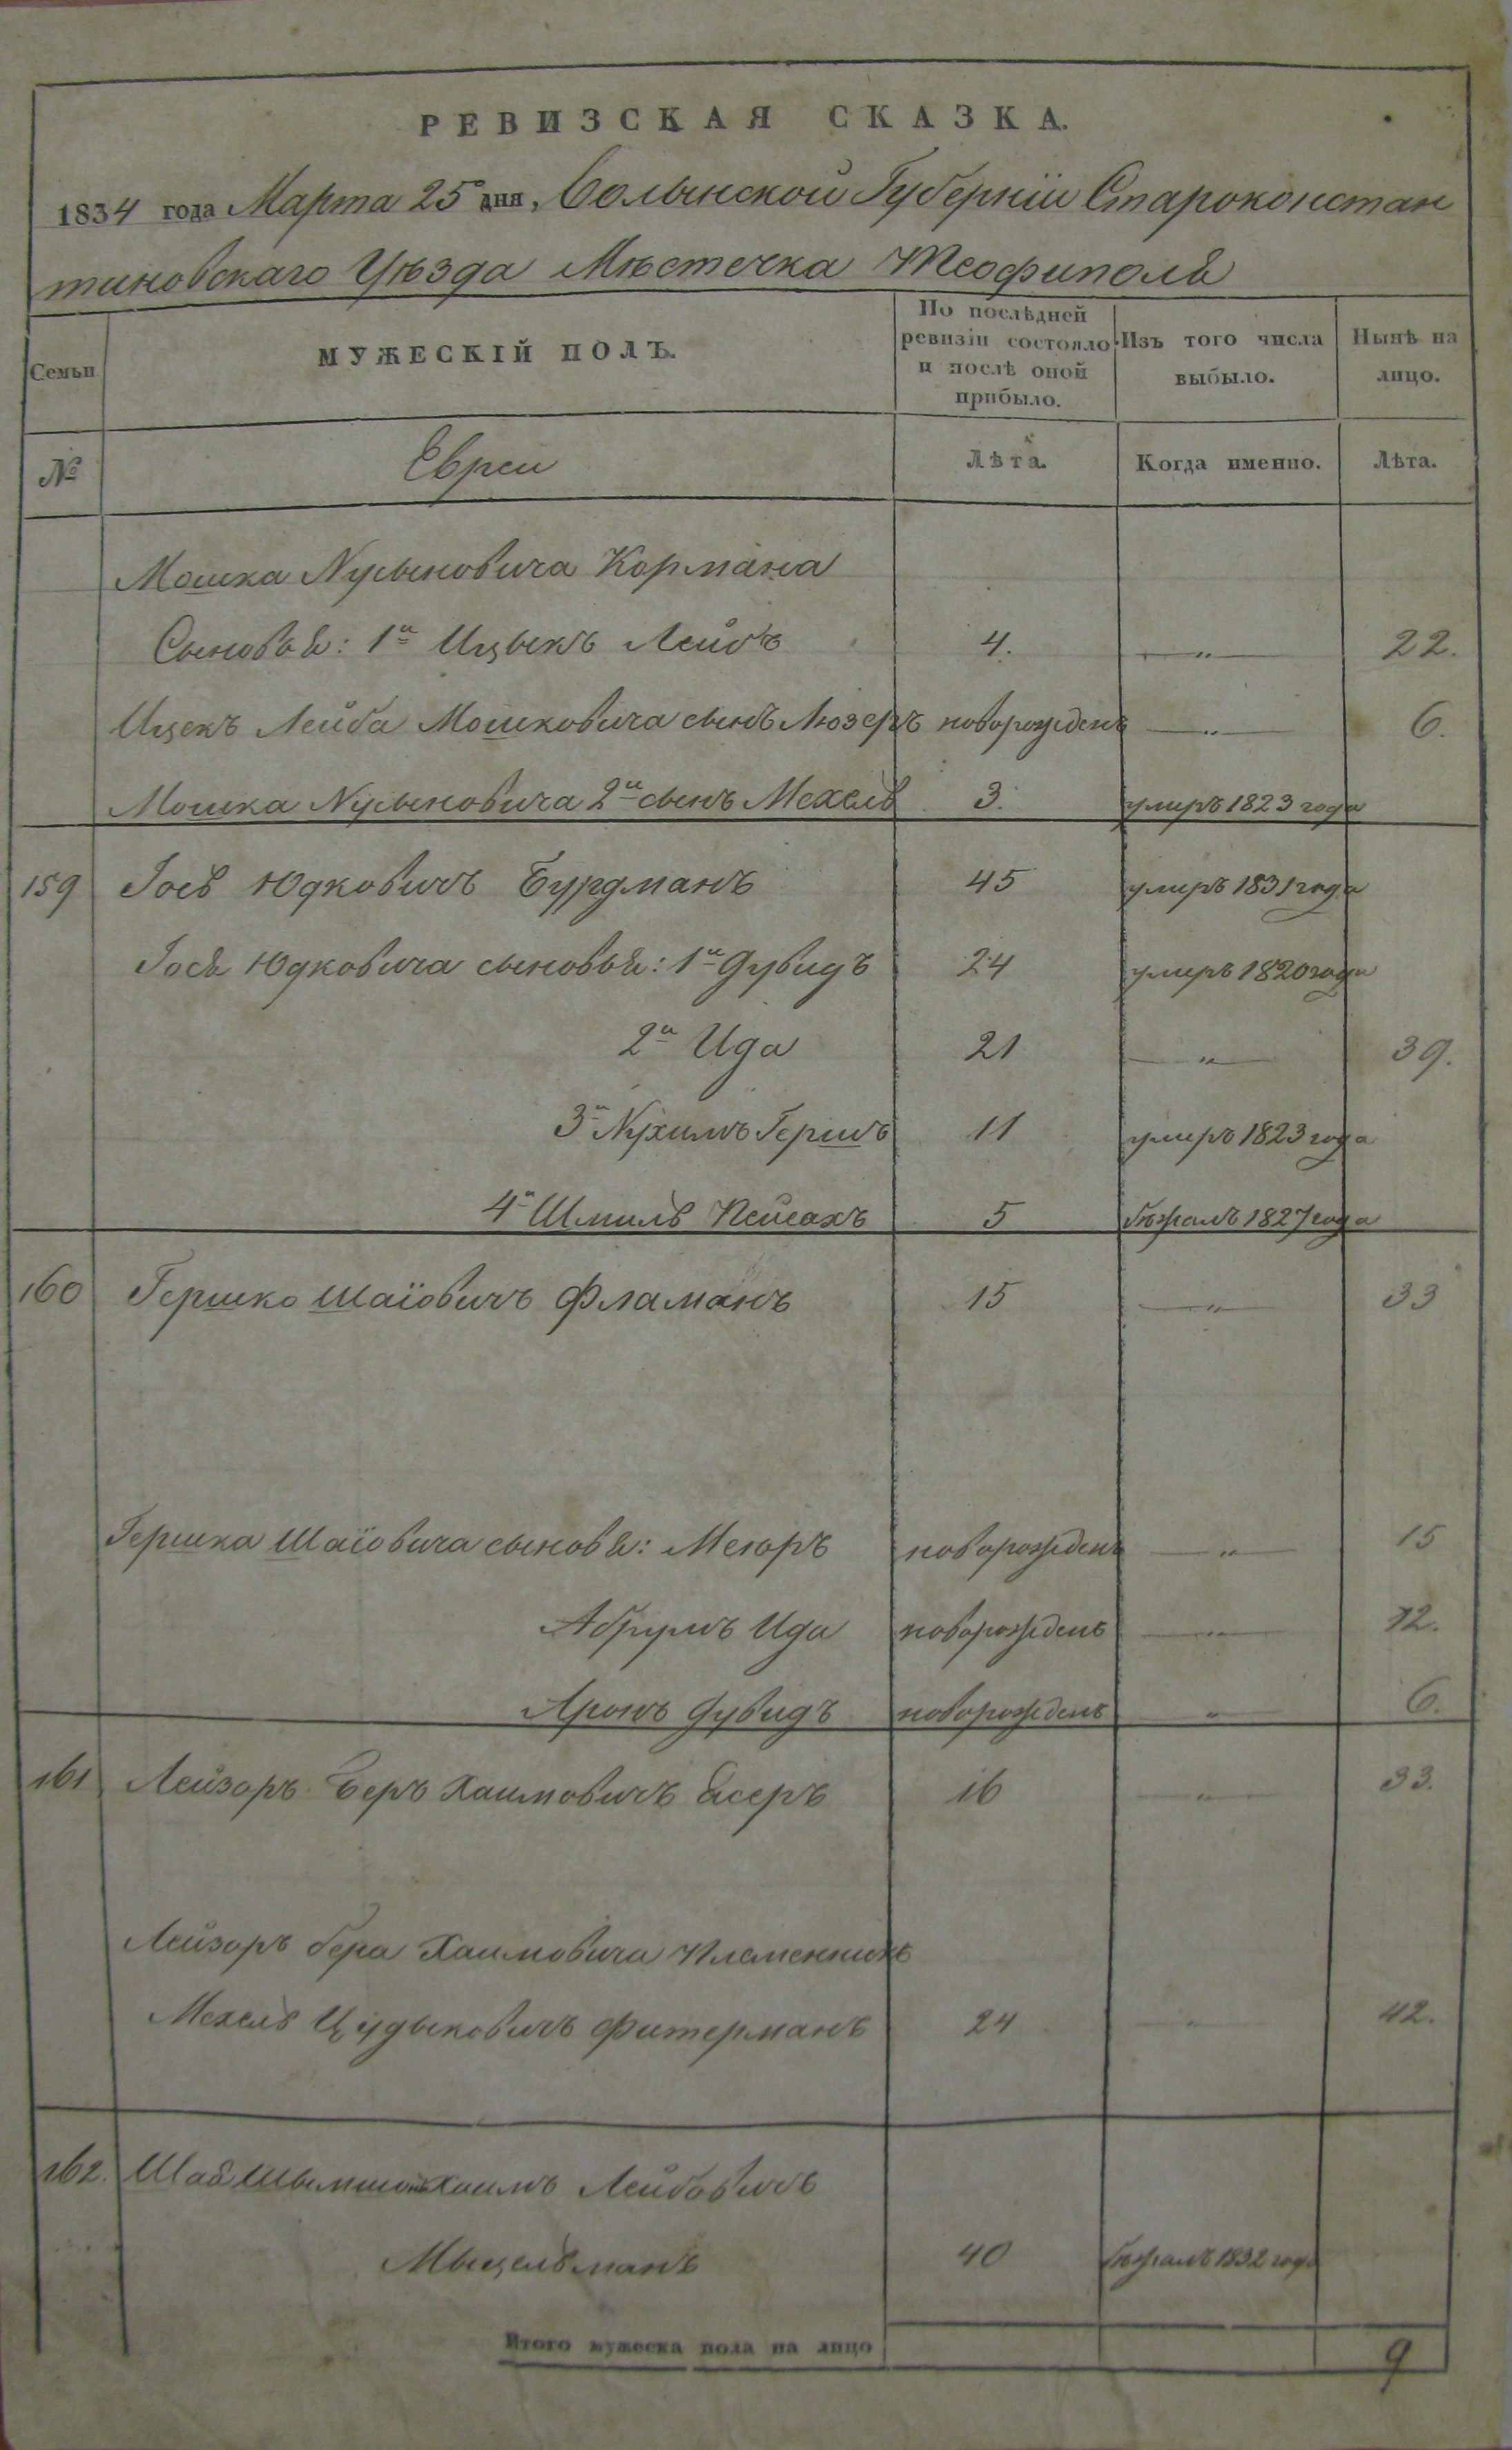 РЕВИЗСКАЯ СКАЗКА.
1834 года Марта 25 дня, Волынской Губерніи Староконстан
тиновскаго Уѣзда Мѣстечка Теофиполя
Семьи
МУЖЕСКІЙ ПОЛЪ.
По послѣдней ревизіи состояло и послѣ оной прибыло.
Изъ того числа выбыло.
Нынѣ на лицо.
№ Евреи Лѣта. Когда именно. Лѣта.
Мошка Нусыновича Кормана
Сыновья: 1й Ицыкъ Лейбъ 4. —„— 22.
Ицекъ Лейба Мошковича сынъ Люзеръ новорожденъ —„— 6.
Мошка Нусыновича 2й сынъ Мехель 3. умеръ 1823 года
159 Іось Юдковичъ Бурдманъ 45 умеръ 1831 года
Іося Юдковича сыновья: 1й Дувидъ 24 умеръ 1820 года
2й Ида 21 —„— 39.
3й Нухимъ Гершъ 11 умеръ 1823 года
4й Шмиль Пейсахъ 5 бѣжалъ 1827 года
160 Гершко Шаіовичъ Фламанъ 15 —„— 33
Гершка Шаіовича сыновя: Меюръ новорожденъ —„— 15
Абрумъ Ида новорожденъ —„— 12.
Аронъ Дувидъ новорожденъ —„— 6.
161 Лейзоръ Беръ Хаимовичъ Ясеръ 16 —„— 33.
Лейзоръ бера Хаимовича племенникъ
Мехель Цудыковичъ Фитерманъ 24 —„— 42.
162. Шая Хаимъ Лейбовичъ
Мыцельманъ 40 бѣжалъ 1832 года
Итого мужеска пола на лицо 9